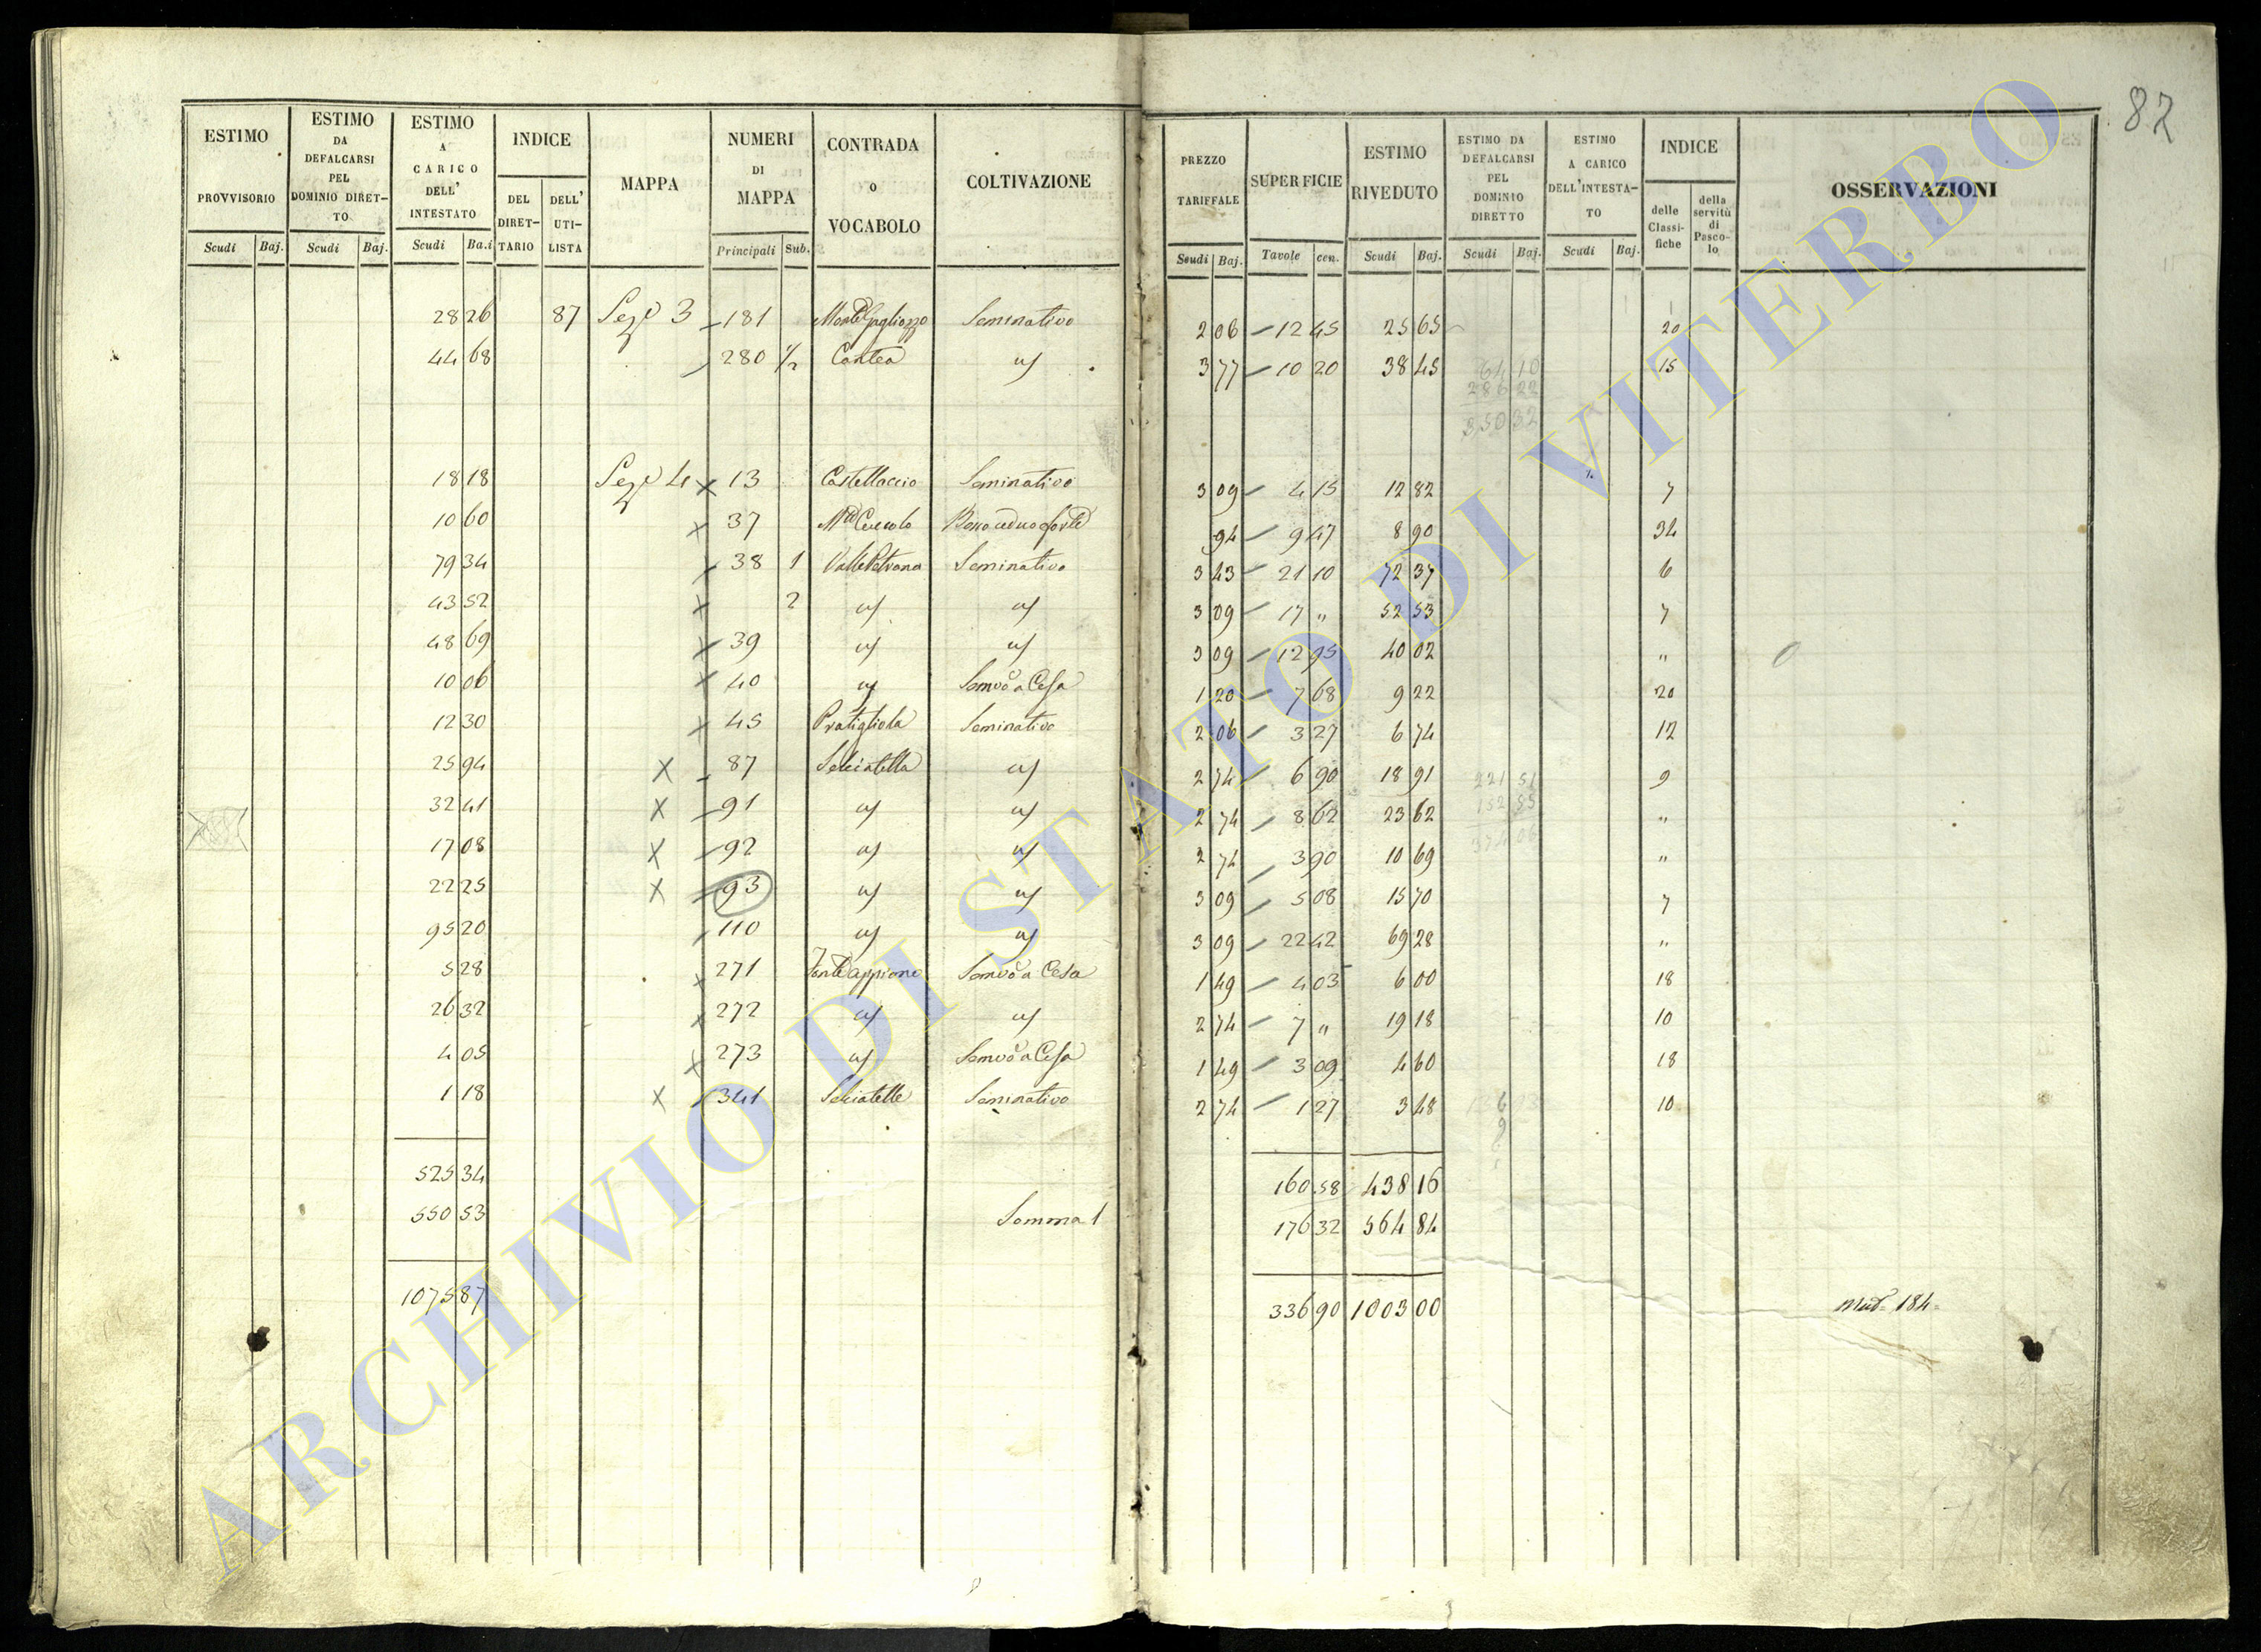 82
ESTIMO PROVVISORIO
ESTIMO DA DEFALCARSI PEL DOMINIO DIRETTO
ESTIMO A CARICO DELL' INTESTATO
INDICE
DEL DIRETTARIO
DELL' UTILISTA
MAPPA
NUMERI DI MAPPA
CONTRADA O VOCABOLO
COLTIVAZIONE
PREZZO TARIFFALE
SUPERFICIE
ESTIMO RIVEDUTO
ESTIMO DA DEFALCARSI PEL DOMINIO DIRETTO
ESTIMO A CARICO DELL'INTESTATO
INDICE
delle Classifiche
della servitù di Pascolo
OSSERVAZIONI
Scudi Baj. Scudi Baj. Scudi Ba.i Principali Sub. Scudi Baj. Tavole cen. Scudi Baj. Scudi Baj. Scudi Baj.
28 26 87 Sez. 3 181 Seminativo 2 06 12 45 25 65 20
44 68 280 1/2 Contea 3 77 10 20 38 45 15
64 10
286 22
350 32
18 18 Sez. 4 13 Castellaccio Seminativo 3 09 4 15 12 82 7
10 60 37 94 9 47 8 90 34
79 34 38 1 Seminativo 3 43 21 10 72 37 6
43 52 2 3 09 17 " 52 53 7
48 69 39 3 09 12 95 40 02 "
10 06 40 1 20 7 68 9 22 20
12 30 45 Pratigliola Seminativo 2 06 3 27 6 74 12
25 94 87 Selciatella 2 74 6 90 18 91 9
32 41 91 2 74 8 62 23 62 "
17 08 92 2 74 3 90 10 69 "
22 25 93 3 09 5 08 15 70 7
95 20 110 3 09 22 42 69 28 "
5 28 271 1 49 4 03 6 00 18
26 32 272 2 74 7 " 19 18 10
4 05 273 1 49 3 09 4 60 18
1 18 341 Selciatelle Seminativo 2 74 1 27 3 48 10
525 34 160 58 438 16
550 53 Somma 1 176 32 564 84
1075 87 336 90 1003 00 184
ARCHIVIO DI STATO DI VITERBO